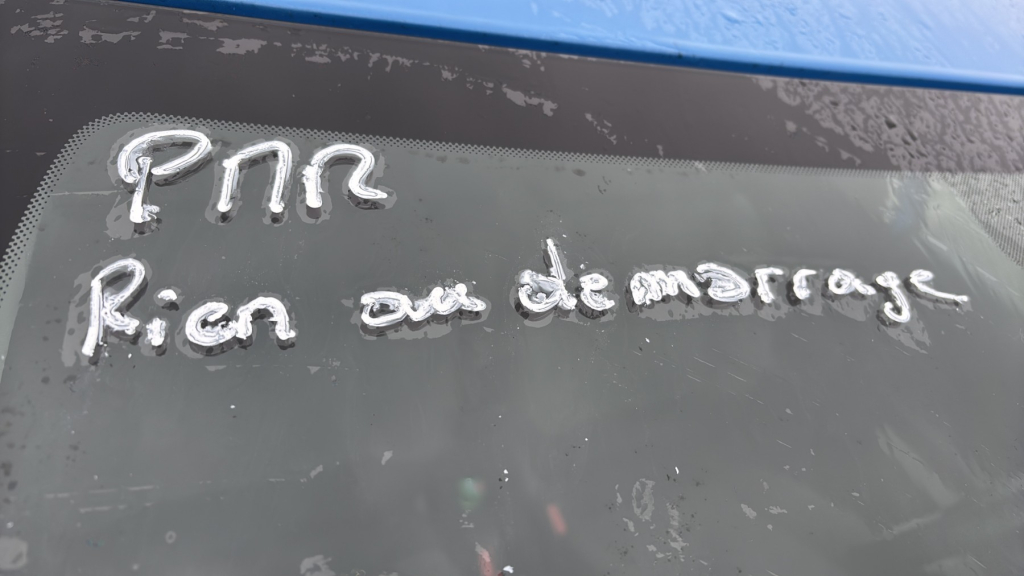 PMR
Rien au demarrage